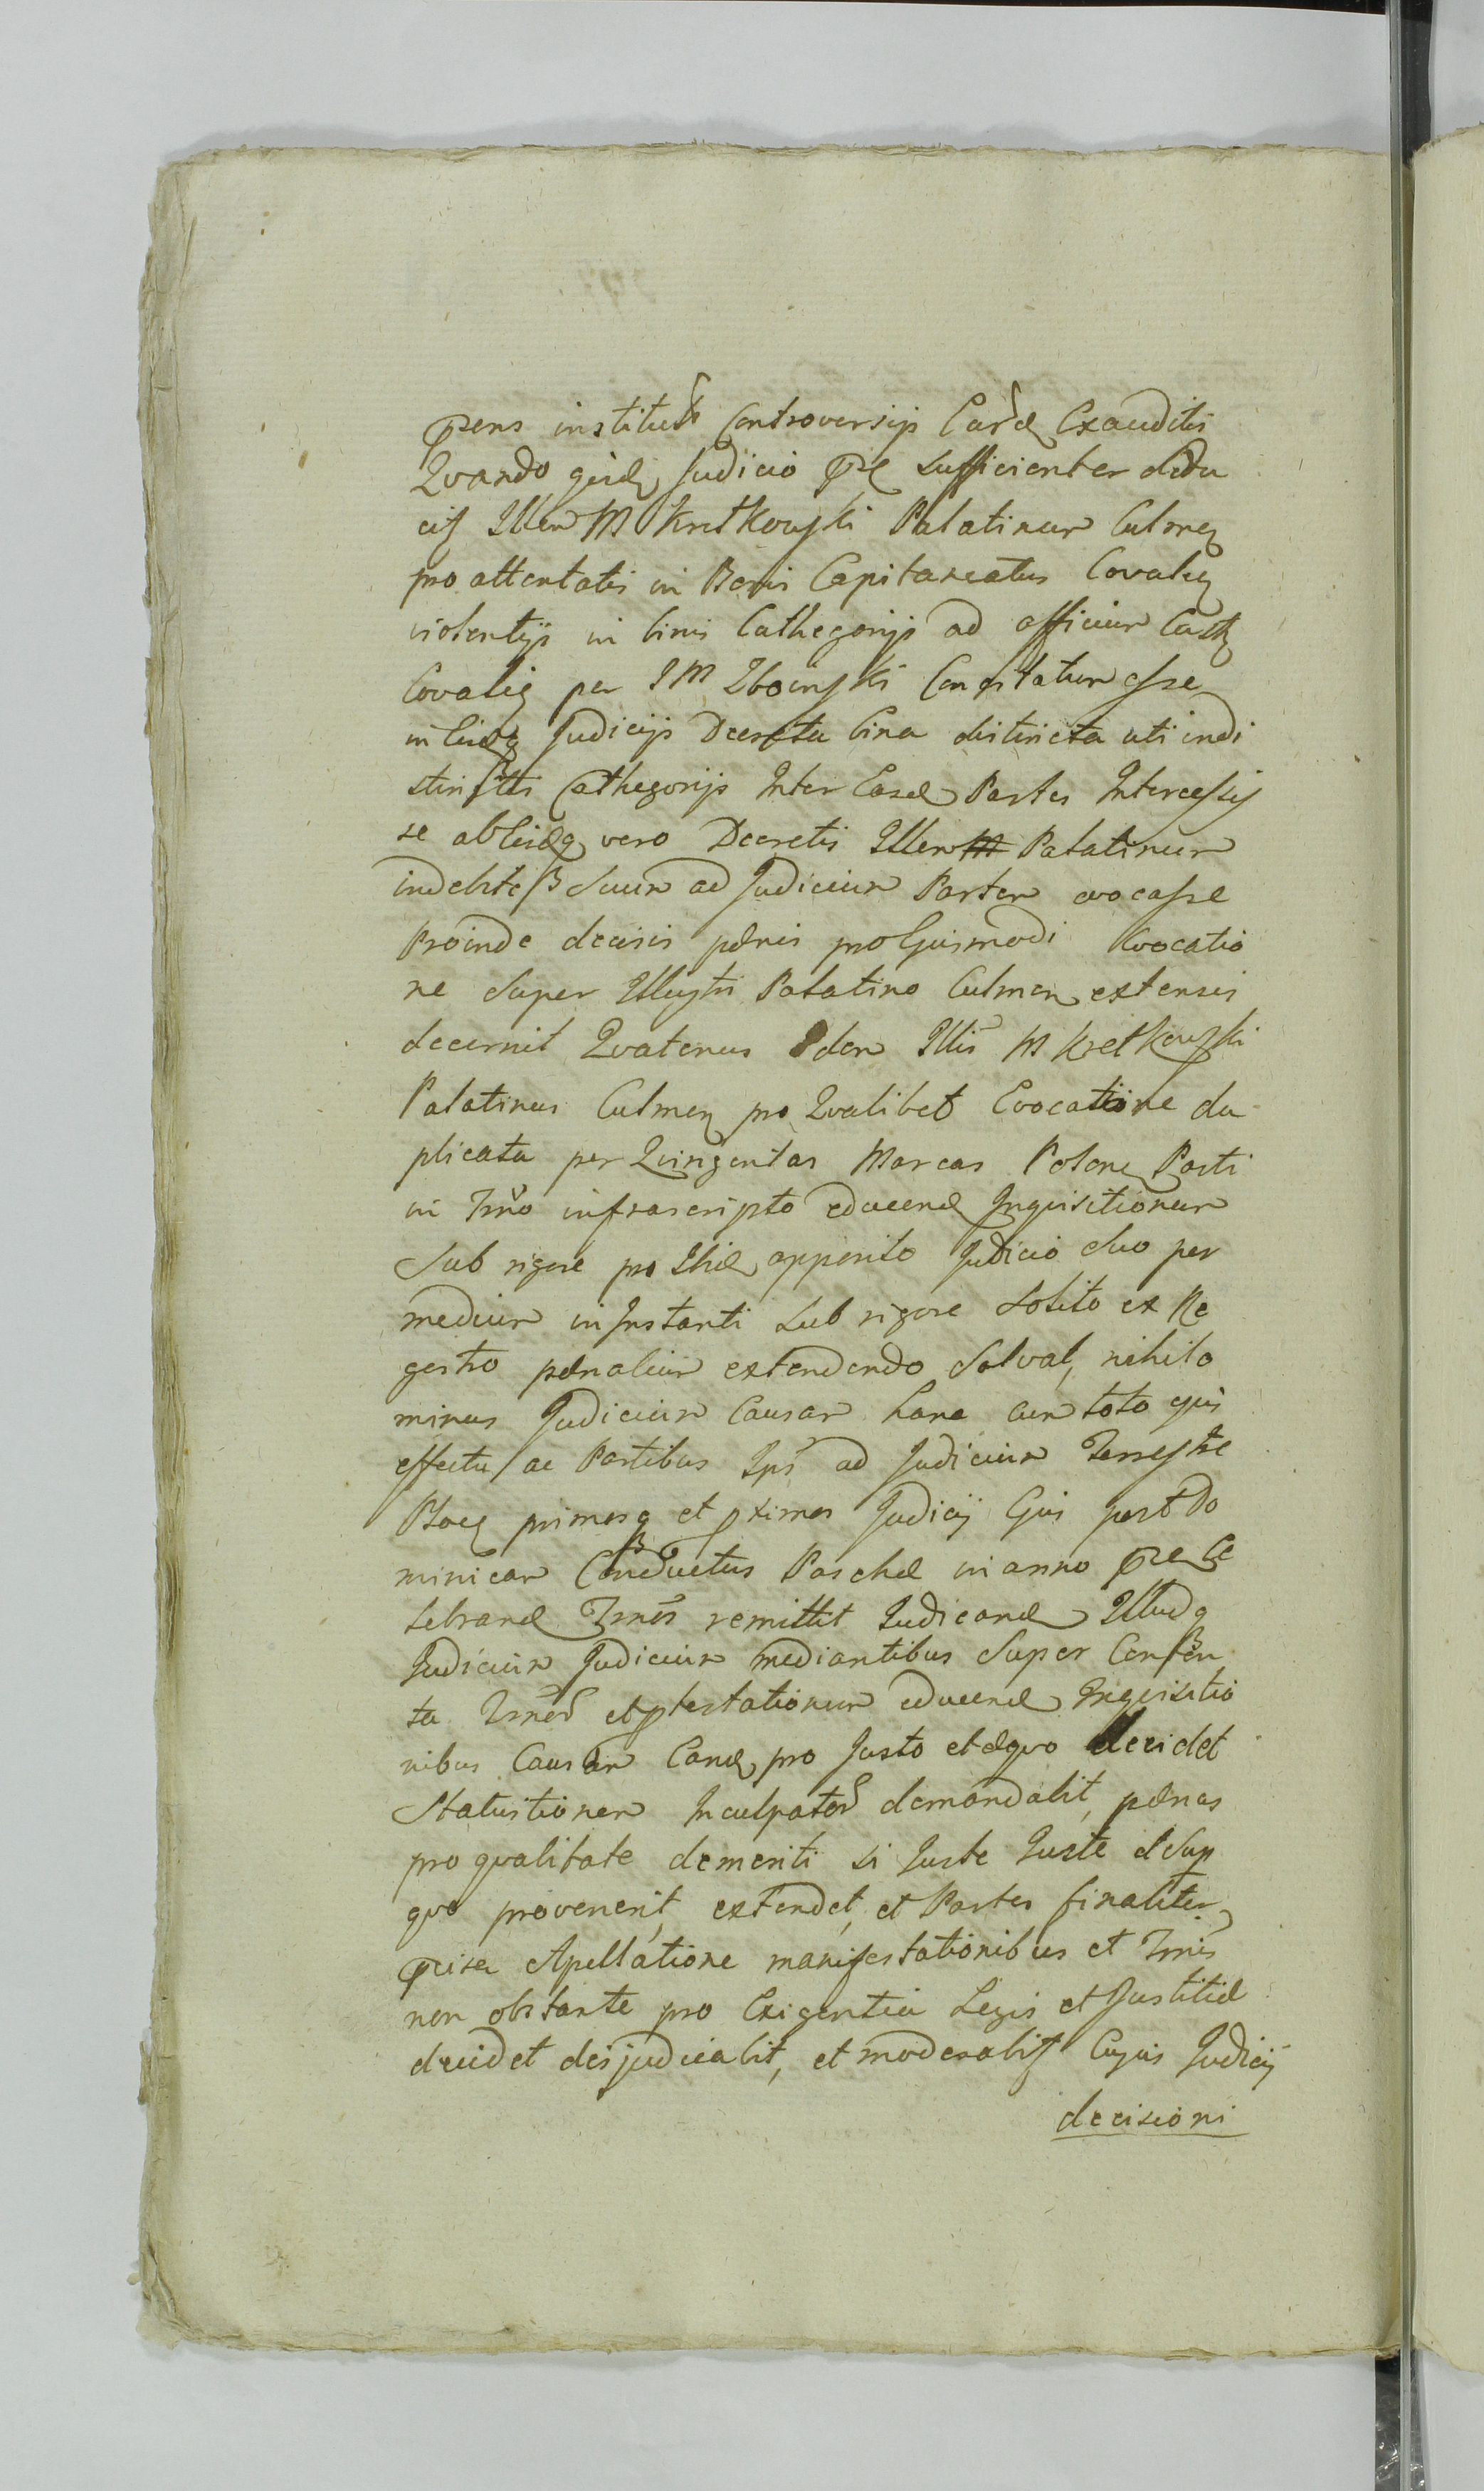 pens institutis Controversijs Eard Exauditis
Qvando qvid Judicio pte sufficienter dedu
cit Illrem M Kretkowski Palatinum Culmen
pro attentatis in Bonis Capitaneatus Covalien
violentijs in binis Cathegorijs ad officium Castr
Covalien per IM Zboinski Concitatum esse
in Judicijs Decreta bina distincta uti indi
stinctis Cathegorijs Inter Easd Partes Intercessis
se ab Eisdq vero Decretis Illrem M Palatinum
indebite suum ad Judicium Partem evocasse
Proinde decisis pœnis pro Ejusmodi Evocatio
ne super Illustri Palatino Culmen extensis
decernit Qvatenus Idem Illis M Kretkowski
Palatinus Culmen pro Qvalibet Evocatione du
plicata per Qvingentas Marcas Polon Parti
in Tmno infrascripto educend Inquisitionum
Sub rigore pro Ihid apposito Judicio suo per
medium in Instanti sub rigore solito ex Re
gestro pœnalium extendendo Solvat, nihilo
minus Judicium Causam hanc cum toto ejus
effectu ac Partibus Ips ad Judicium Terrestre
primor et pximor Judicij Ejus post Do
minicam Conductus Paschæ in anno pte Ce
lebrand Tmis remittit Judicand Illudq
Judicium Judicium mediantibus Super Conten
ta Tmor et ptestationum educend Inquisitio
nibus Causam Eand pro Justo et æquo decidet
Statuitionem Inculpator demandabit, pœnas
pro qvalitate demeriti si Juste Juste et Sup
qvo provenerit, extendet, et Partes finaliter
Apellatione manifestationibus et Tmis
non obstante pro Exigentia Legis et Justitiæ
decidet deisjudicabit, et moderabit Cujus Judicij
decisioni